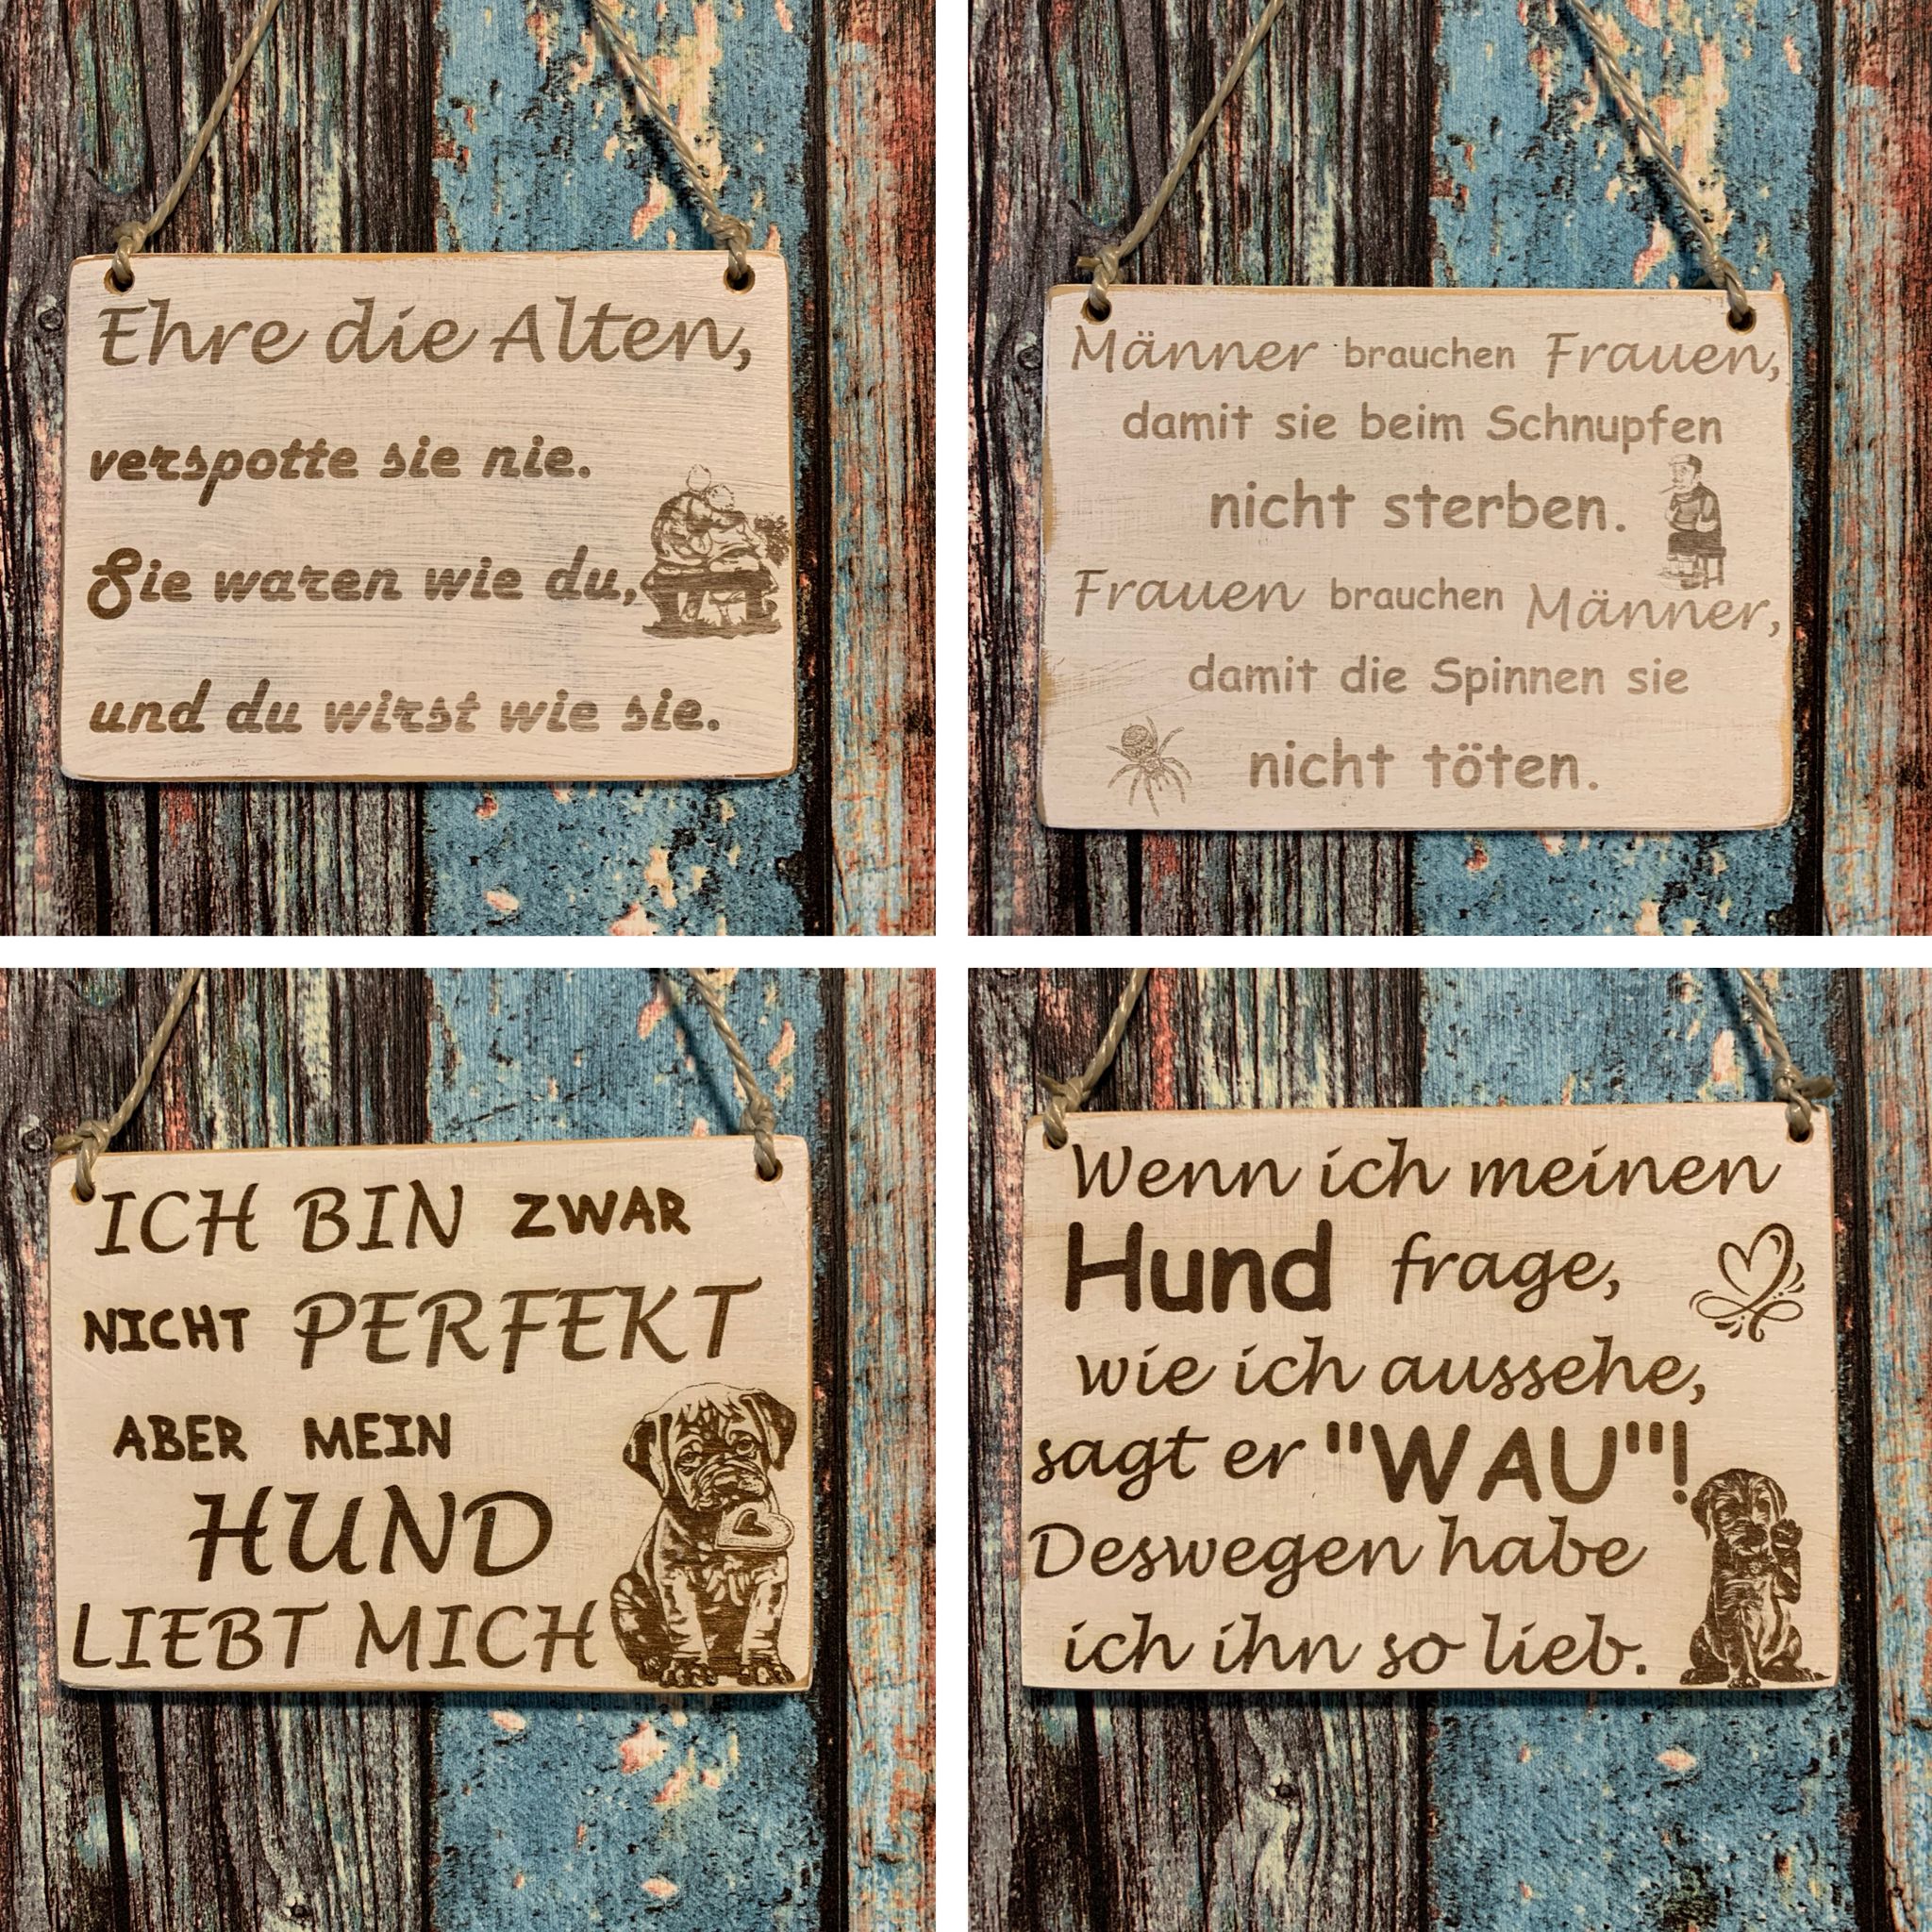 Ehre die Alten,
verspotte sie nie.
Sie waren wie du,
und du wirst wie sie.
Männer brauchen Frauen,
damit sie beim Schnupfen
nicht sterben.
Frauen brauchen Männer,
damit die Spinnen sie
nicht töten.
ICH BIN ZWAR
NICHT PERFEKT
ABER MEIN
HUND
LIEBT MICH
Wenn ich meinen
Hund frage,
wie ich aussehe,
sagt er "WAU"!
Deswegen habe
ich ihn so lieb.